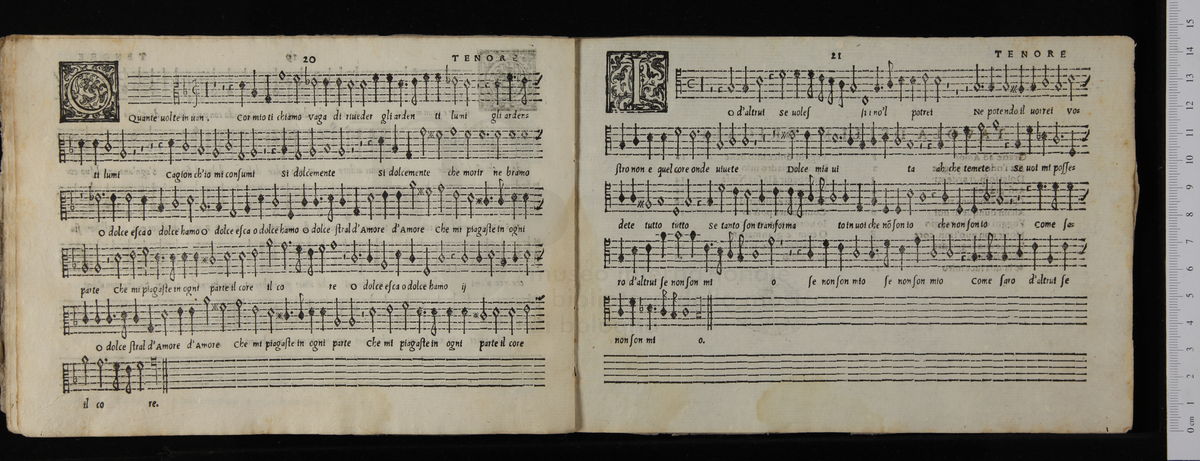 20 TENORE
Q Quante uolte in uan. Cor mio ti chiamo vaga di riueder gli arden ti lumi gli arden=
ti lumi Cagion ch'io mi consumi Si dolcemente Si dolcemente che morir ne bramo
O dolce esca o dolce hamo O dolce esca o dolce hamo O dolce stral d'Amore d'Amore Che mi piagaste in ogni
parte Che mi piagaste in ogni parte il core il co re O dolce esca o dolce hamo ij
O dolce stral d'Amore d'Amore Che mi piagaste in ogni parte Che mi piagaste in ogni parte il core
il co re.
21 TENORE
I O d'altrui se uoless si i no'l potrei Ne potendo il uorrei vos
stro non e quel core onde uiuete Dolce mia ui ta ah che temete Se uoi mi posses
dete tutto tutto Se tanto son transforma to in uoi che nõ son io che non son io Come sas
ro d'altrui se non son mi o se non son mio se non son mio Come saro d'altrui se
non son mi o.
15
14
13
12
11
10
9
8
7
6
5
4
3
2
1
0 cm